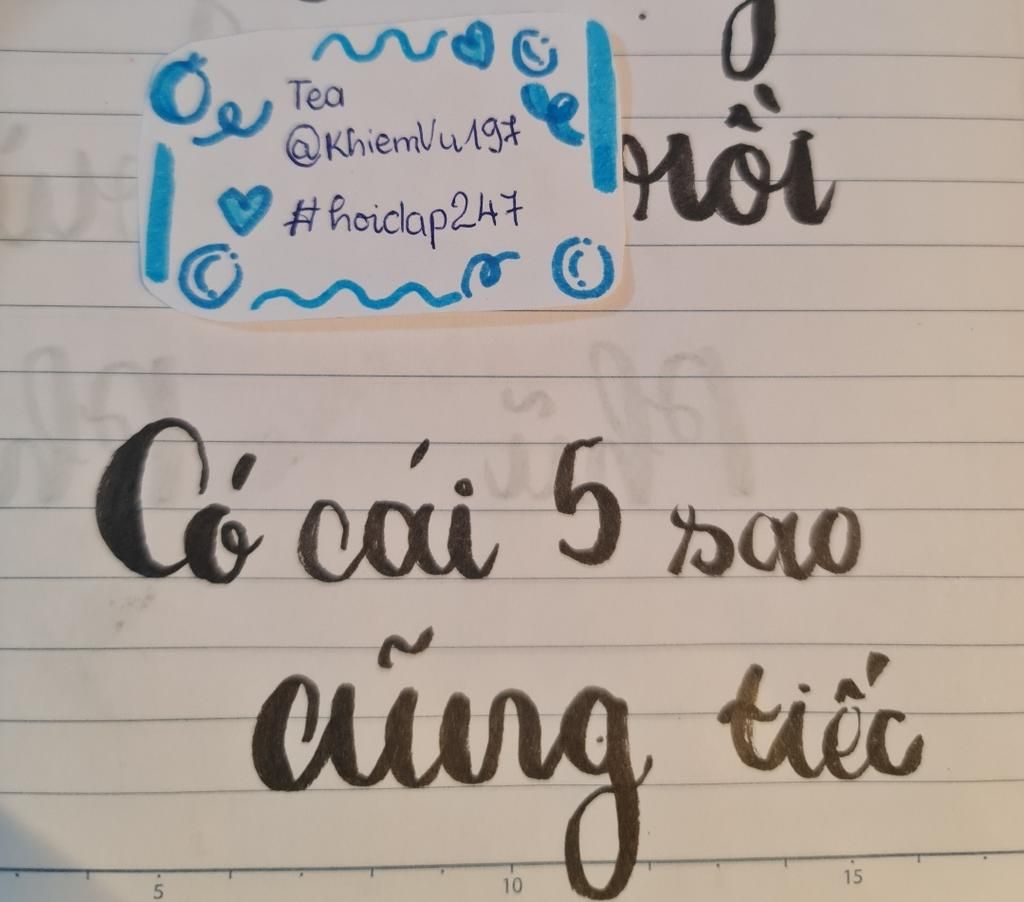 Tea
@KhiemVu197
#hoidap247
rồi
Có cái 5 sao
cũng tiếc
5 10 15